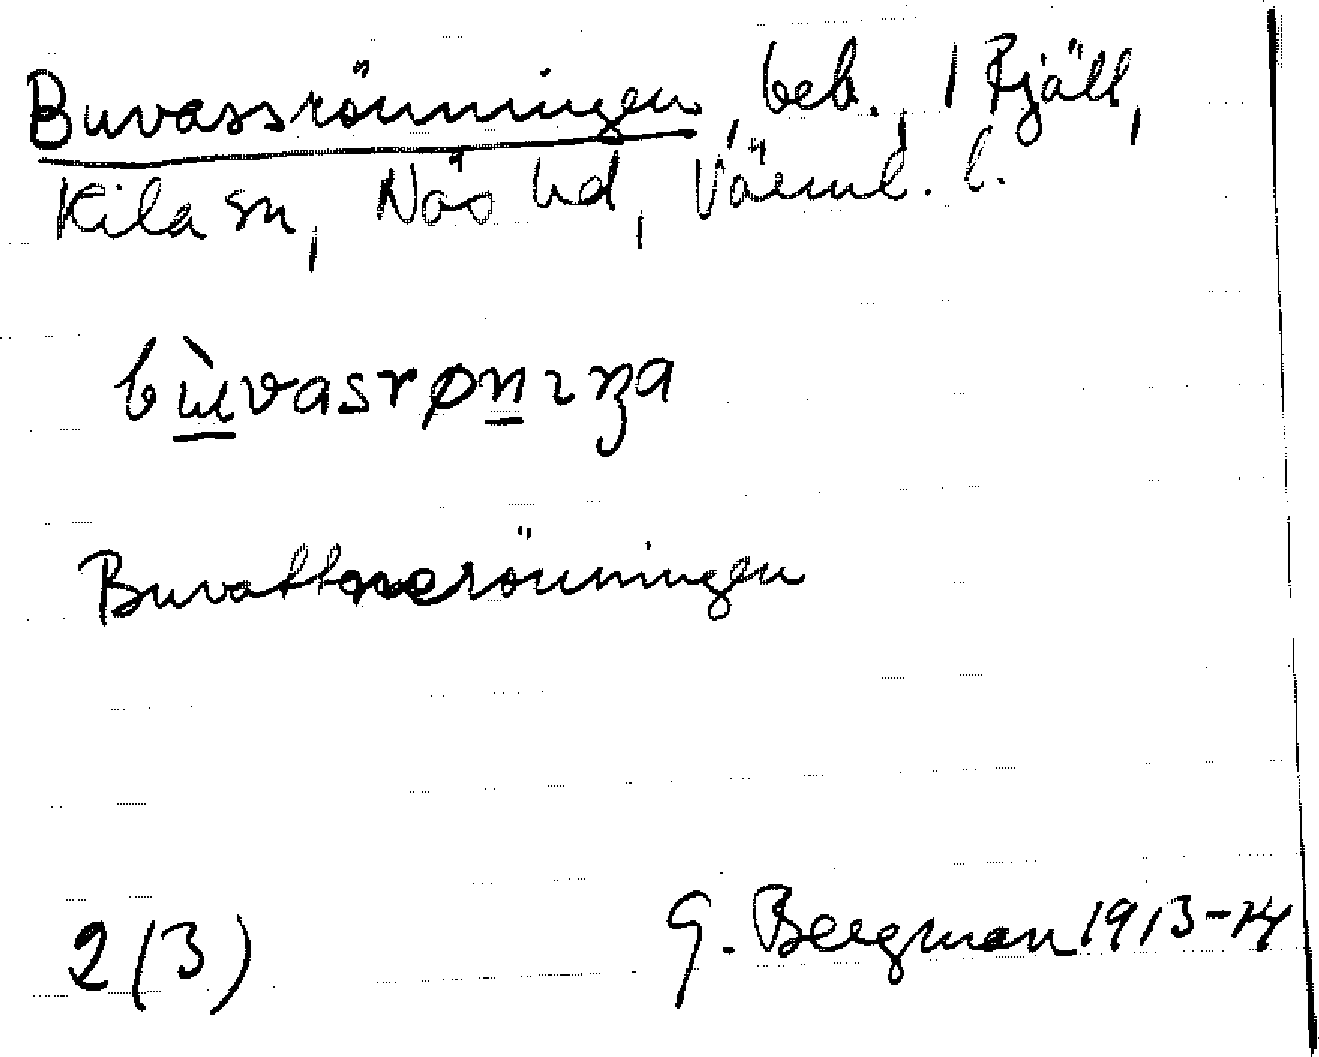 Buvassrönningen, beb., 1 Rjäll,
Kila sn, Näs hd, Värml. l.
bùvasrønıŋa
Buvattnerönningen
2(3) G. Bergman 1913-14